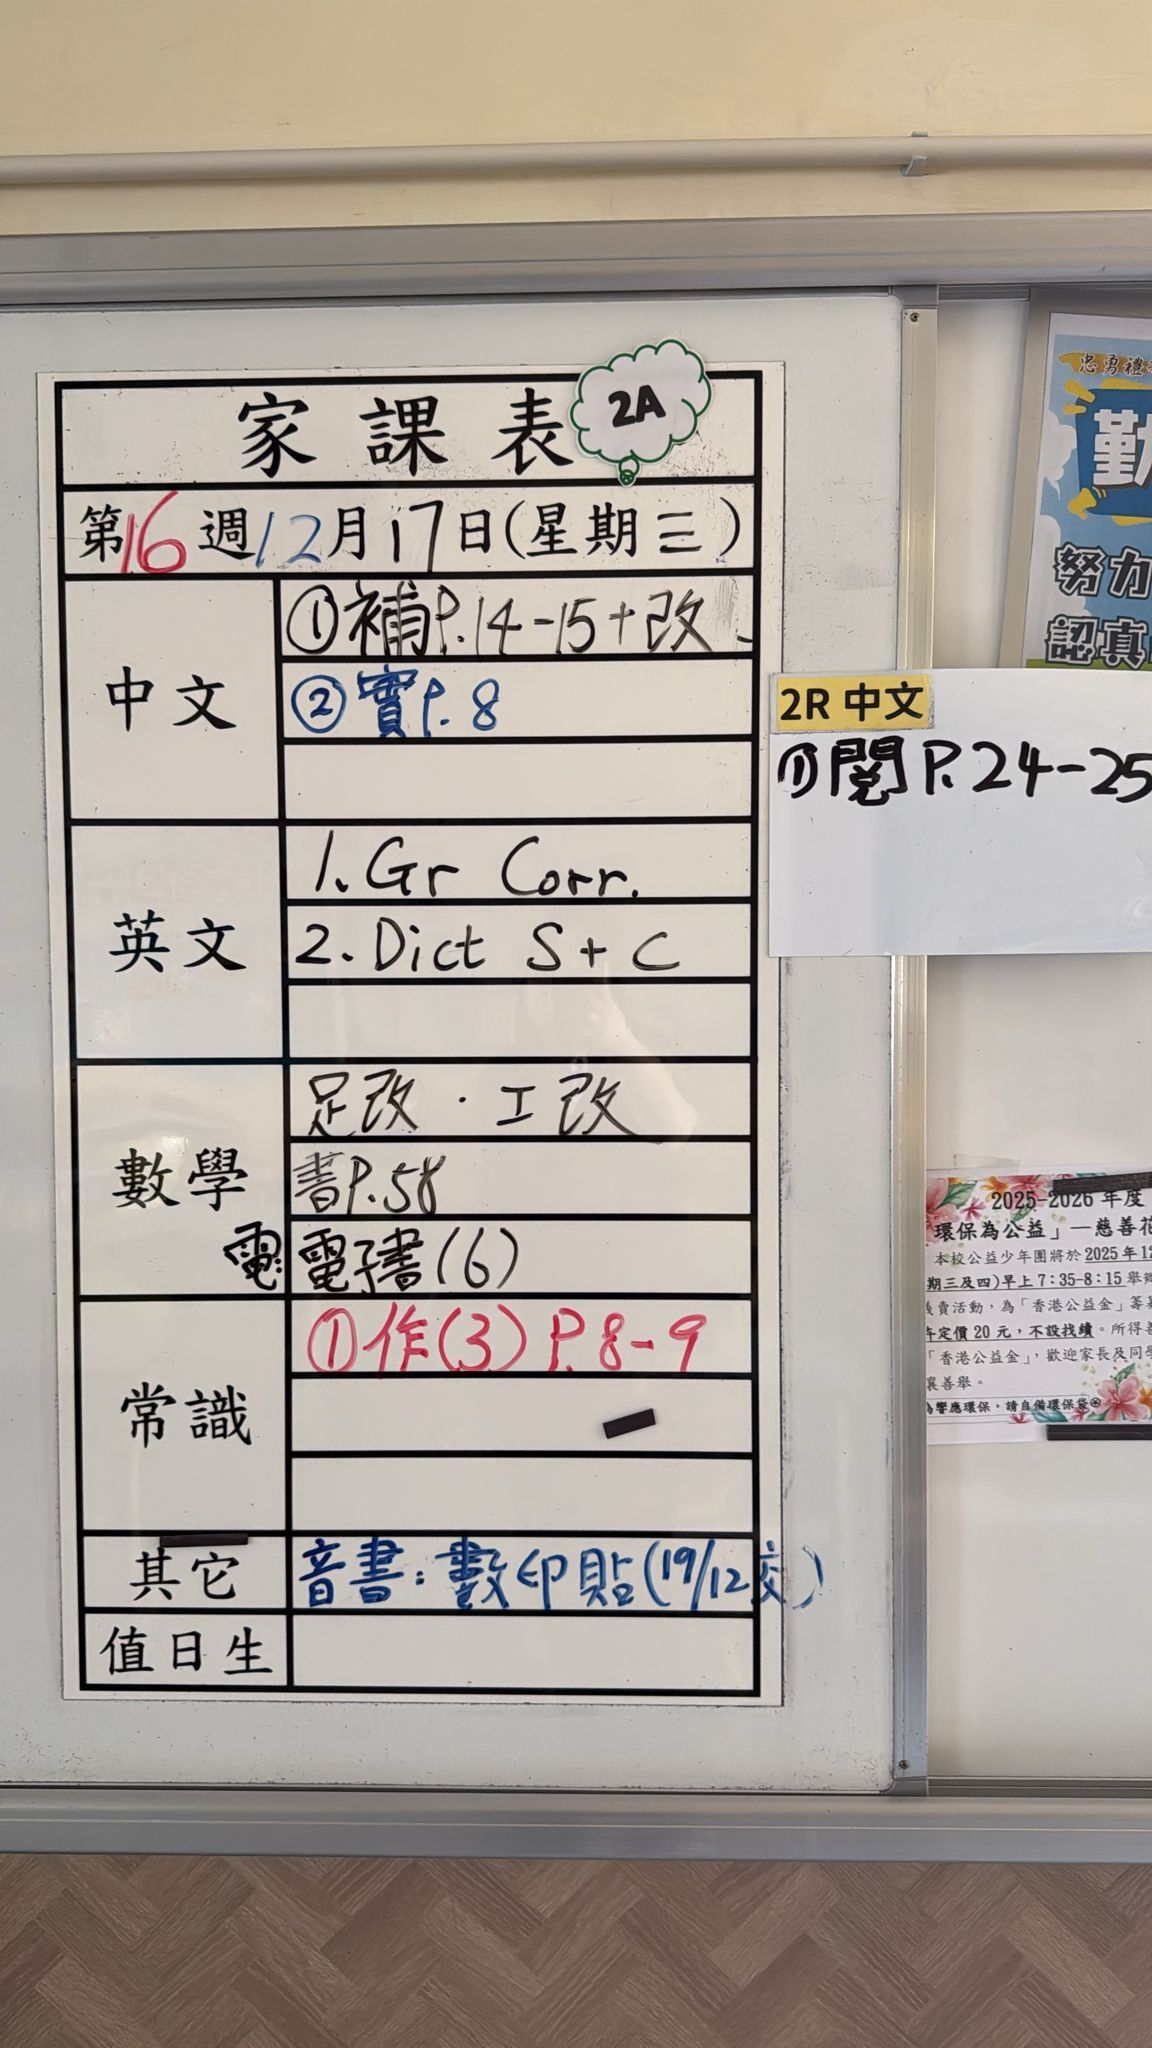 家課表 2A
第16週12月17日(星期三)
中文
①補P.14-15+改
②實P.8
英文
1. Gr Corr.
2. Dict S+C
數學
足改 · 工改
書P.58
電: 電子書(6)
常識
①作(3) P.8-9
其它
音書: 數印貼(19/12交)
值日生
忠勇禮
勤
努力
認真
2R 中文
①閱P.24-25
2025-2026 年度
環保為公益」—慈善花
本校公益少年團將於 2025年12
期三及四)早上7:35-8:15舉辦
義賣活動,為「香港公益金」籌
定價20元,不設找續。所得善
「香港公益金」,歡迎家長及同學
襄善舉。
為響應環保,請自備環保袋